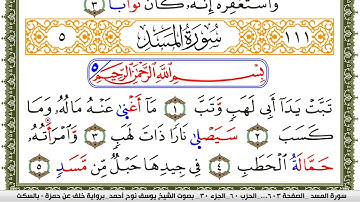 وَاسْتَغْفِرْهُ إِنَّهُ، كَانَ تَوَّابًا ٣
٥ سُورَةُ الْمَسَدِ ١١١
بِسْمِ اللَّهِ الرَّحْمَنِ الرَّحِيمِ ٥
تَبَّتْ يَدَا أَبِي لَهَبٍ وَتَبَّ ١ مَا أَغْنَى عَنْهُ مَالُهُ، وَمَا
كَسَبَ ٢ سَيَصْلَى نَارًا ذَاتَ لَهَبٍ ٣ وَامْرَأَتُهُ،
حَمَّالَةُ الْحَطَبِ ٤ فِي جِيدِهَا حَبْلٌ مِّن مَّسَدٍ ٥
سورة المسد _الصفحة ٦٠٣... الحزب ٦٠_الجزء ٣٠_ بصوت الشيخ يوسف نوح أحمد_برواية خلف عن حمزة - بالسكت